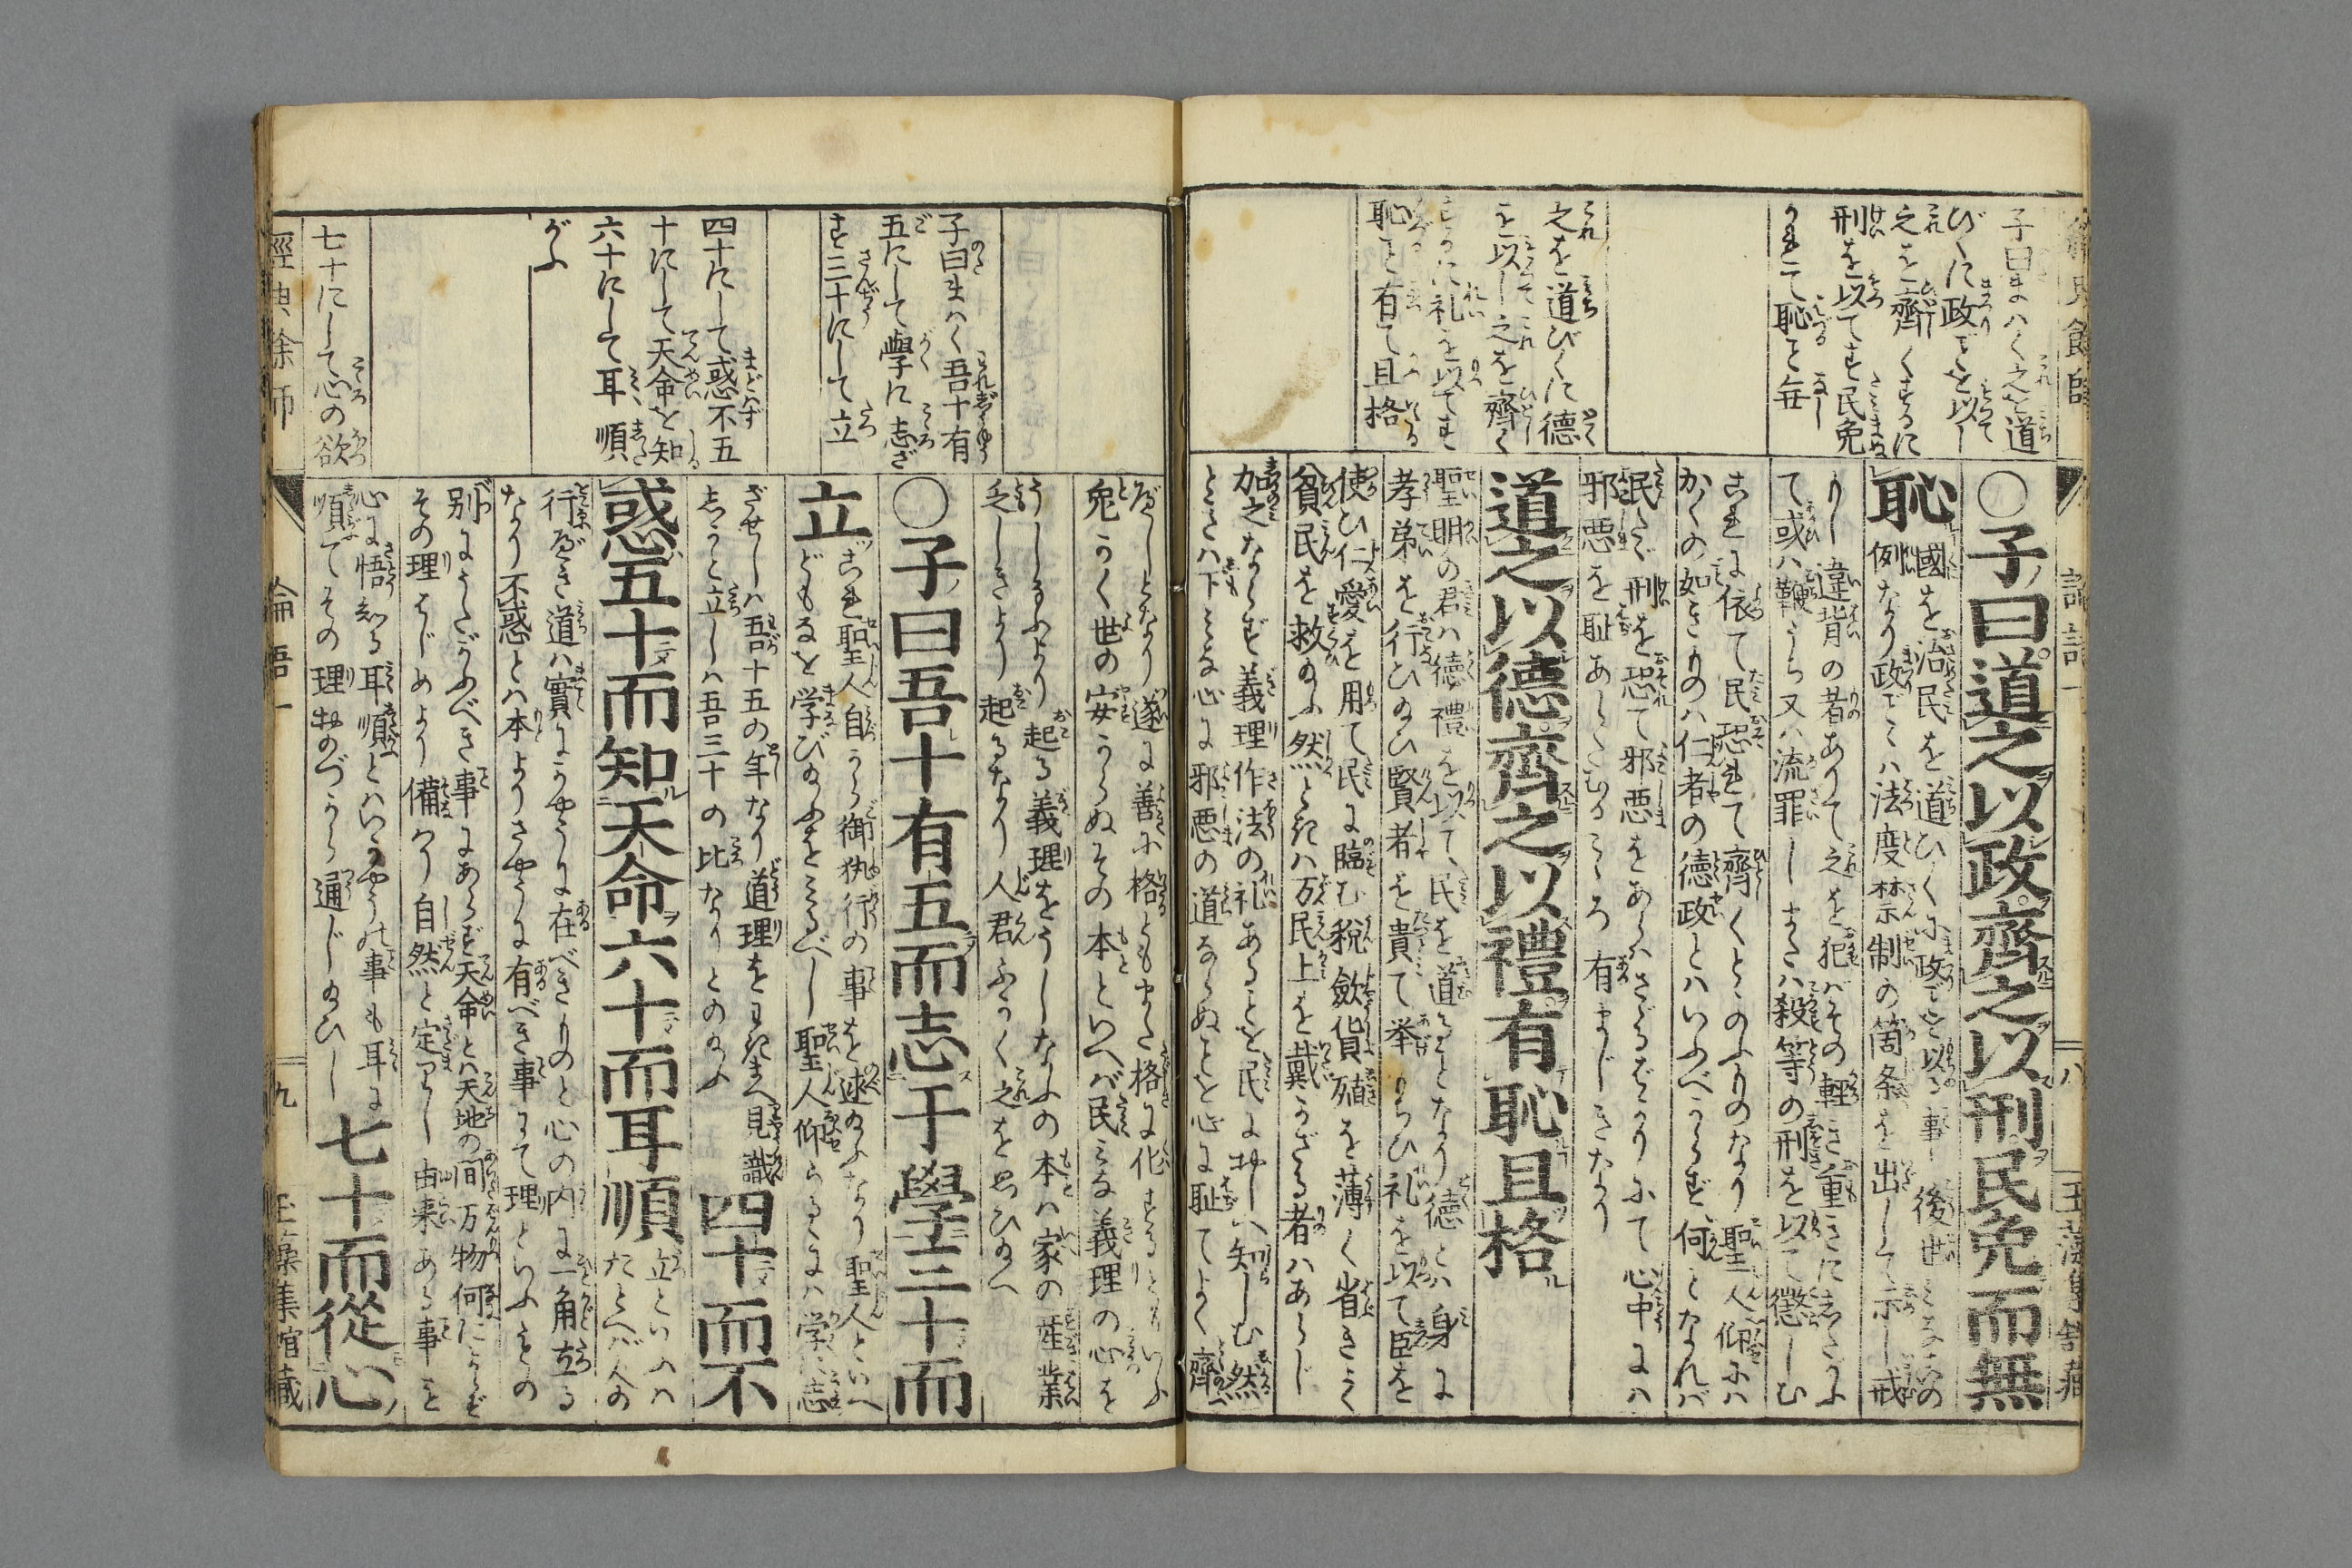 子曰まはく之を道
びくに政ごとを以し
之を齊くするに
刑を以てす民免
かれて恥こと無
之を道びくに德
を以し之を齊く
するに礼を以てす
恥こと有て且格
○子曰道之以政齊之以刑民免而無
恥
國を治民を道ひくに政ごとを以る事し後世みな其の
例なり政ごとハ法度禁制の箇条を出して示し戒
りし違背の者ありて之を犯ばその軽き重きにしたがふ
て或ハ鞭うち又ハ流罪しまたハ殺等の刑を以て懲しむ
これに依て民恐れて齊くとゝのふものなり聖人仰にハ
かくの如きものハ仁者の德政とハいふべからず何となれバ
民たゞ刑を恐て邪悪をあらハさゞるばかりにて心中にハ
邪悪を耻あらたむるこゝろ有まじきなり
道之以德齊之以禮有恥且格
聖明の君ハ德禮を以て民を道ることなり德とハ身に
孝弟を行ひ給ひ賢者を貴て挙もちひ礼を以て臣を
使ひ仁愛を用て民に臨む税歛貨殖を薄く省きよく
貧民を救給ふ然るときハ万民上を戴かざる者ハあらじ
加之ならず義理作法の礼あることを民におしへ知しむ然
ときハ下みな心に邪悪の道ならぬことを心に耻てよく齊
八
子曰まハく吾十有
五にして學に志ざ
す三十にして立
四十にして惑不五
十にして天命を知
六十にして耳順
がふ
七十にして心の欲
べしとなり遂に善に格ともまた格に化するともいふ
兎かく世の安からぬその本といへバ民みな義理の心を
うしなふより起る義理をうしなふの本ハ家の産業
乏しきより起るなり人君ふかく之を思ひ給へ
○子曰吾十有五而志于學三十而
立
これ聖人自から御執行の事を述給ふなり聖人といへ
どもなを学び給ふをミるべし聖人仰らるゝにハ学に志
ざせしハ吾十五の年なり道理をわきまへ見識
しかと立しハ吾三十の比なりとの給ふ
四十而不
惑五十而知天命六十而耳順
立といふハ
たとへバ人の
行べき道ハ實にかやうに在べきものと心の内に一角立る
なり不惑とハ本よりさやうに有べき事にて理といふもの
別にうたがふべき事にあらず天命とハ天地の間万物何にかぎらず
その理はじめより備ハり自然と定りし由来ある事を
心に悟知る耳順とハいかやうの事も耳に
順てその理おのづから通じ給ひし
七十而從心
經典余師
論吾一
九